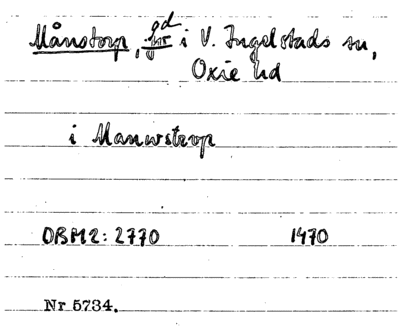 Månstorp, gd i V. Ingelstads sn,
Oxie hd
i Manwstrop
DBM2: 2770 1470
Nr 5734.